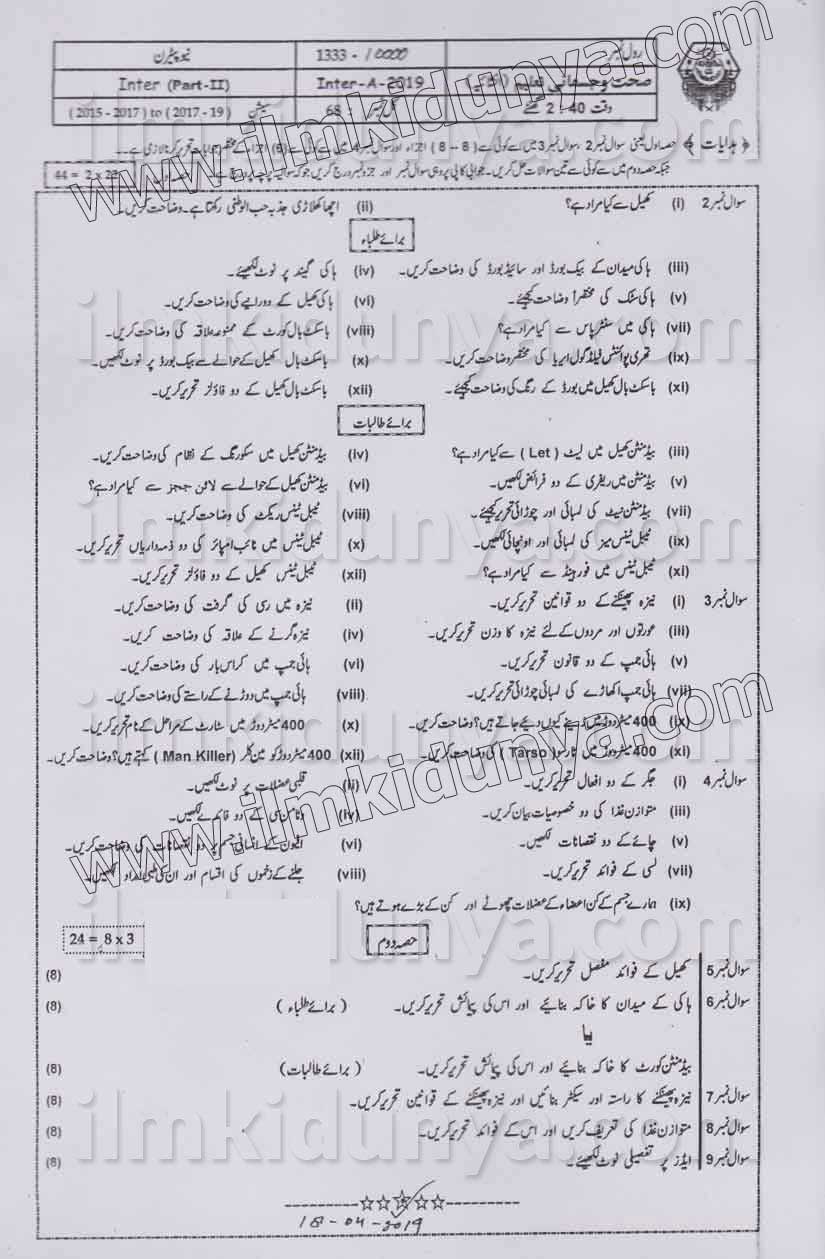 رول نمبر 1333 - 10000 نیو پیٹرن
صحت و جسمانی تعلیم Inter-A-2019 Inter (Part-II)
وقت 2-40 گھنٹے کل نمبر : 68 سیشن (2015 - 2017) to (2017 - 19)
﴿ ہدایات ﴾ حصہ اول یعنی سوال نمبر 2 ، سوال نمبر 3 میں سے کوئی سے (8 – 8) اجزاء اور سوال نمبر 4 میں سے کوئی سے (6) اجزاء کے مختصر جوابات تحریر کرنا لازمی ہے ۔۔۔
جبکہ حصہ دوم میں سے کوئی سے تین سوالات حل کریں۔ جوابی کاپی پر وہی سوال نمبر اور جزو نمبر درج کریں جو کہ سوالیہ پرچے پر درج ہے۔ حصہ اول 44 = 2 x 22
سوال نمبر 2 (i) کھیل سے کیا مراد ہے؟ (ii) اچھا کھلاڑی جذبہ حب الوطنی رکھتا ہے۔ وضاحت کریں۔
برائے طلباء
(iii) ہاکی میدان کے بیک بورڈ اور سائیڈ بورڈ کی وضاحت کریں۔ (iv) ہاکی گیند پر نوٹ لکھیئے۔
(v) ہاکی سٹک کی مختصراً وضاحت کیجئے۔ (vi) ہاکی کھیل کے دورانیے کی وضاحت کریں۔
(vii) ہاکی میں سنٹر پاس سے کیا مراد ہے؟ (viii) باسکٹ بال کورٹ کے ممنوعہ علاقہ کی وضاحت کریں۔
(ix) تھری پوائنٹس فیلڈ گول ایریا کی مختصر وضاحت کریں۔ (x) باسکٹ بال کھیل کے حوالے سے بیک بورڈ پر نوٹ لکھیں۔
(xi) باسکٹ بال کھیل میں بورڈ کے رنگ کی وضاحت کیجئے۔ (xii) باسکٹ بال کھیل کے دو فاؤلز تحریر کریں۔
برائے طالبات
(iii) بیڈمنٹن کھیل میں لیٹ (Let) سے کیا مراد ہے؟ (iv) بیڈمنٹن کھیل میں سکورنگ کے نظام کی وضاحت کریں۔
(v) بیڈمنٹن میں ریفری کے دو فرائض لکھیں۔ (vi) بیڈمنٹن کھیل کے حوالے سے لائن ججز سے کیا مراد ہے؟
(vii) بیڈمنٹن نیٹ کی لمبائی اور چوڑائی تحریر کیجئے۔ (viii) ٹیبل ٹینس ریکٹ کی وضاحت کریں۔
(ix) ٹیبل ٹینس میز کی لمبائی اور اونچائی لکھیں۔ (x) ٹیبل ٹینس میں نائب امپائر کی دو ذمہ داریاں تحریر کریں۔
(xi) ٹیبل ٹینس میں فورہینڈ سے کیا مراد ہے؟ (xii) ٹیبل ٹینس کھیل کے دو فاؤلز تحریر کریں۔
سوال نمبر 3 (i) نیزہ پھینکنے کے دو قوانین تحریر کریں۔ (ii) نیزہ میں رسی کی گرفت کی وضاحت کریں۔
(iii) عورتوں اور مردوں کے لئے نیزہ کا وزن تحریر کریں۔ (iv) نیزہ گرنے کے علاقہ کی وضاحت کریں۔
(v) ہائی جمپ کے دو قانون تحریر کریں۔ (vi) ہائی جمپ میں کراس بار کی وضاحت کریں۔
(vii) ہائی جمپ اکھاڑے کی لمبائی چوڑائی تحریر کریں۔ (viii) ہائی جمپ میں دوڑنے کے راستے کی وضاحت کریں۔
(ix) 400 میٹر دوڑ میں ڈسٹنس کیوں دیئے جاتے ہیں؟ وضاحت کریں۔ (x) 400 میٹر دوڑ میں سٹارٹ کے مراحل کے نام تحریر کریں۔
(xi) 400 میٹر دوڑ میں ٹارسو (Tarso) کی وضاحت کریں۔ (xii) 400 میٹر دوڑ کو مین کلر (Man Killer) کہتے ہیں؟ وضاحت کریں۔
سوال نمبر 4 (i) جگر کے دو افعال تحریر کریں۔ (ii) قلبی عضلات پر نوٹ لکھیں۔
(iii) متوازن غذا کی دو خصوصیات بیان کریں۔ (iv) وٹامن سی کے دو فائدے لکھیئے۔
(v) چائے کے دو نقصانات لکھیں۔ (vi) افیون کے انسانی جسم پر دو نقصانات کی وضاحت کریں۔
(vii) لسی کے فوائد تحریر کریں۔ (viii) جلنے کے زخموں کی اقسام اور ان کی طبی امداد لکھیں۔
(ix) ہمارے جسم کے کن اعضاء کے عضلات چھوٹے اور کن کے بڑے ہوتے ہیں؟
حصہ دوم 24 = 8 x 3
سوال نمبر 5 کھیل کے فوائد مفصل تحریر کریں۔ (8)
سوال نمبر 6 ہاکی کے میدان کا خاکہ بنائیے اور اس کی پیمائش تحریر کریں۔ (برائے طلباء) (8)
یا
بیڈمنٹن کورٹ کا خاکہ بنائیے اور اس کی پیمائش تحریر کریں۔ (برائے طالبات) (8)
سوال نمبر 7 نیزہ پھینکنے کا راستہ اور سیکٹر بنائیں اور نیزہ پھینکنے کے قوانین تحریر کریں۔ (8)
سوال نمبر 8 متوازن غذا کی تعریف کریں اور اس کے فوائد تحریر کریں۔ (8)
سوال نمبر 9 ایڈز پر تفصیلی نوٹ لکھیئے۔ (8)
18-04-2019
www.ilmkidunya.com
ilmkidunya.com
ilmkidunya.com
www.ilmkidunya.com
ilmkidunya.com
ilmkidunya.com
ilmkidunya.com